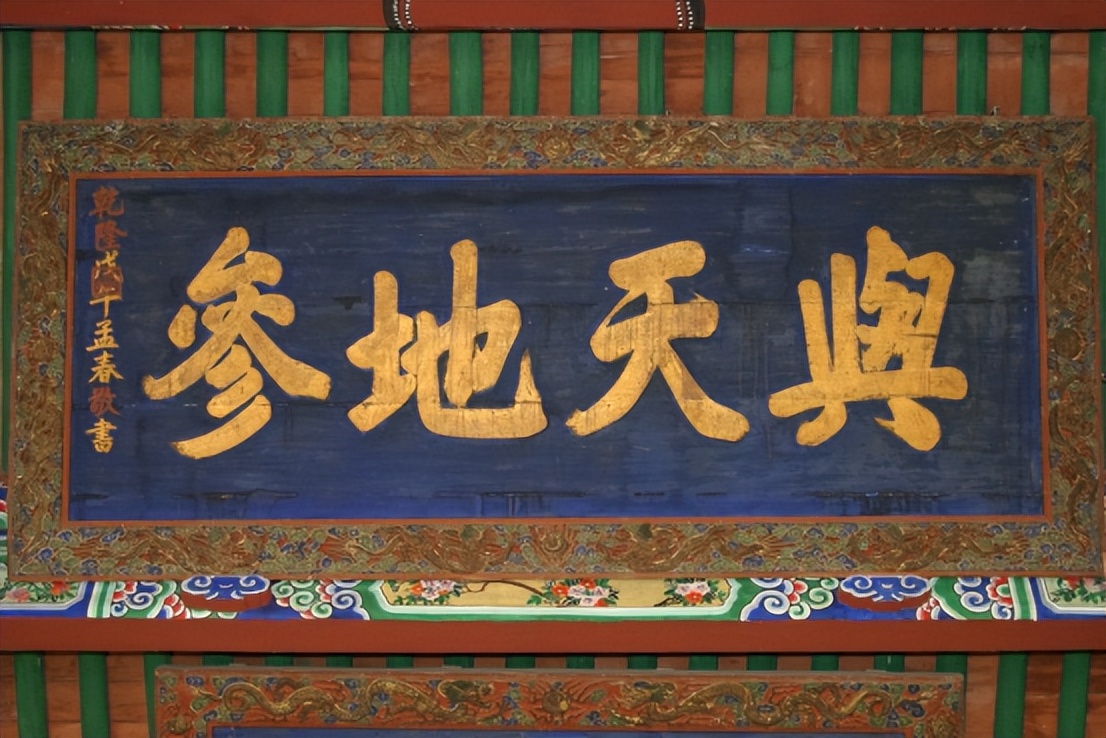 與天地參
乾隆戊午孟春敬書